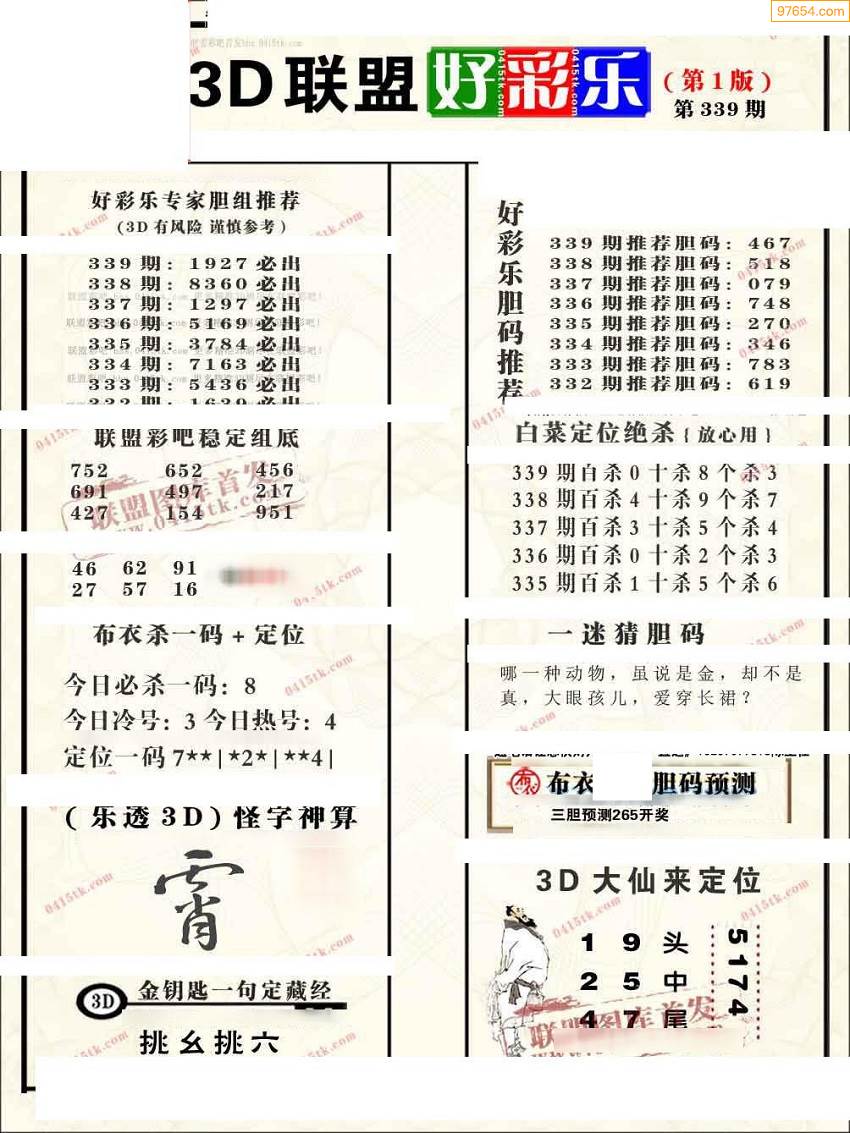 97654.com
3D联盟好彩乐
(第1版)
第339期
好彩乐专家胆组推荐
(3D有风险 谨慎参考)
339期: 1927必出
338期: 8360必出
337期: 1297必出
336期: 5169必出
335期: 3784必出
334期: 7163必出
333期: 5436必出
联盟彩吧稳定组底
752 652 456
691 497 217
427 154 951
46 62 91
27 57 16
布衣杀一码+定位
今日必杀一码: 8
今日冷号: 3 今日热号: 4
定位一码 7**|*2*|**4|
(乐透3D)怪字神算
霄
3D 金钥匙一句定藏经
挑幺挑六
好彩乐胆码推荐
339期推荐胆码: 467
338期推荐胆码: 518
337期推荐胆码: 079
336期推荐胆码: 748
335期推荐胆码: 270
334期推荐胆码: 346
333期推荐胆码: 783
332期推荐胆码: 619
白菜定位绝杀{放心用}
339期百杀0十杀8个杀3
338期百杀4十杀9个杀7
337期百杀3十杀5个杀4
336期百杀0十杀2个杀3
335期百杀1十杀5个杀6
一迷猜胆码
哪一种动物，虽说是金，却不是
真，大眼孩儿，爱穿长裙？
布衣 胆码预测
三胆预测265开奖
3D大仙来定位
1 9 头
2 5 中
4 7 尾
5174
联盟图库首发
www.0415tk.com
0415tk.com